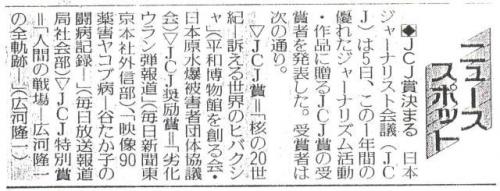 ニュース
スポット
◆JCJ賞決まる　日本
ジャーナリスト会議（JC
J）は5日、この1年間の
優れたジャーナリズム活動
・作品に贈るJCJ賞の受
賞者を発表した。受賞者は
次の通り。
▽JCJ賞＝「核の20世
紀―訴える世界のヒバクシ
ャ」（平和博物館を創る会・
日本原水爆被害者団体協議
会）▽JCJ奨励賞＝「劣化
ウラン弾報道」（毎日新聞東
京本社外信部）「映像90
薬害ヤコブ病―谷たか子の
闘病記録―」（毎日放送報道
局社会部）▽JCJ特別賞
＝「人間の戦場―広河隆一
の全軌跡―」（広河隆一）